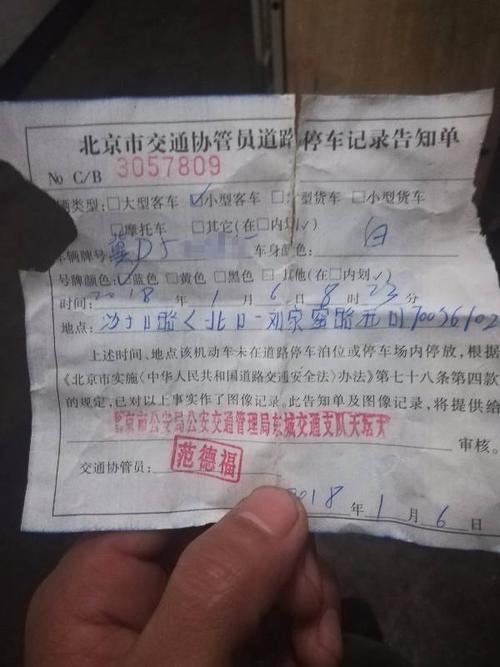 北京市交通协管员道路停车记录告知单
No C/B 3057809
辆类型:□大型客车 ☑小型客车 □大型货车 □小型货车
□摩托车 □其它(在□内划√)
车辆牌号:冀D5 车身颜色: 白
号牌颜色:☑蓝色 □黄色 □黑色 □其他(在□内划√)
时间: 2018 年 1 月 6 日 8 时 23 分
地点: 路 北口 刘家窑路
上述时间、地点该机动车未在道路停车泊位或停车场内停放,根据
《北京市实施〈中华人民共和国道路交通安全法〉办法》第七十八条第四款
的规定,已对以上事实作了图像记录。此告知单及图像记录,将提供给
北京市公安局公安交通管理局东城交通支队天坛大 审核。
交通协管员: 范德福
2018 年 1 月 6 日